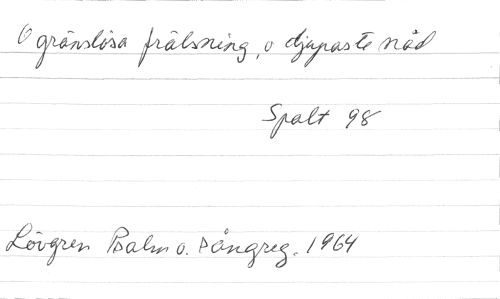 O gränslösa frälsning, o djupaste nåd
Spalt 98
Lövgren Psalm o. sångreg. 1964